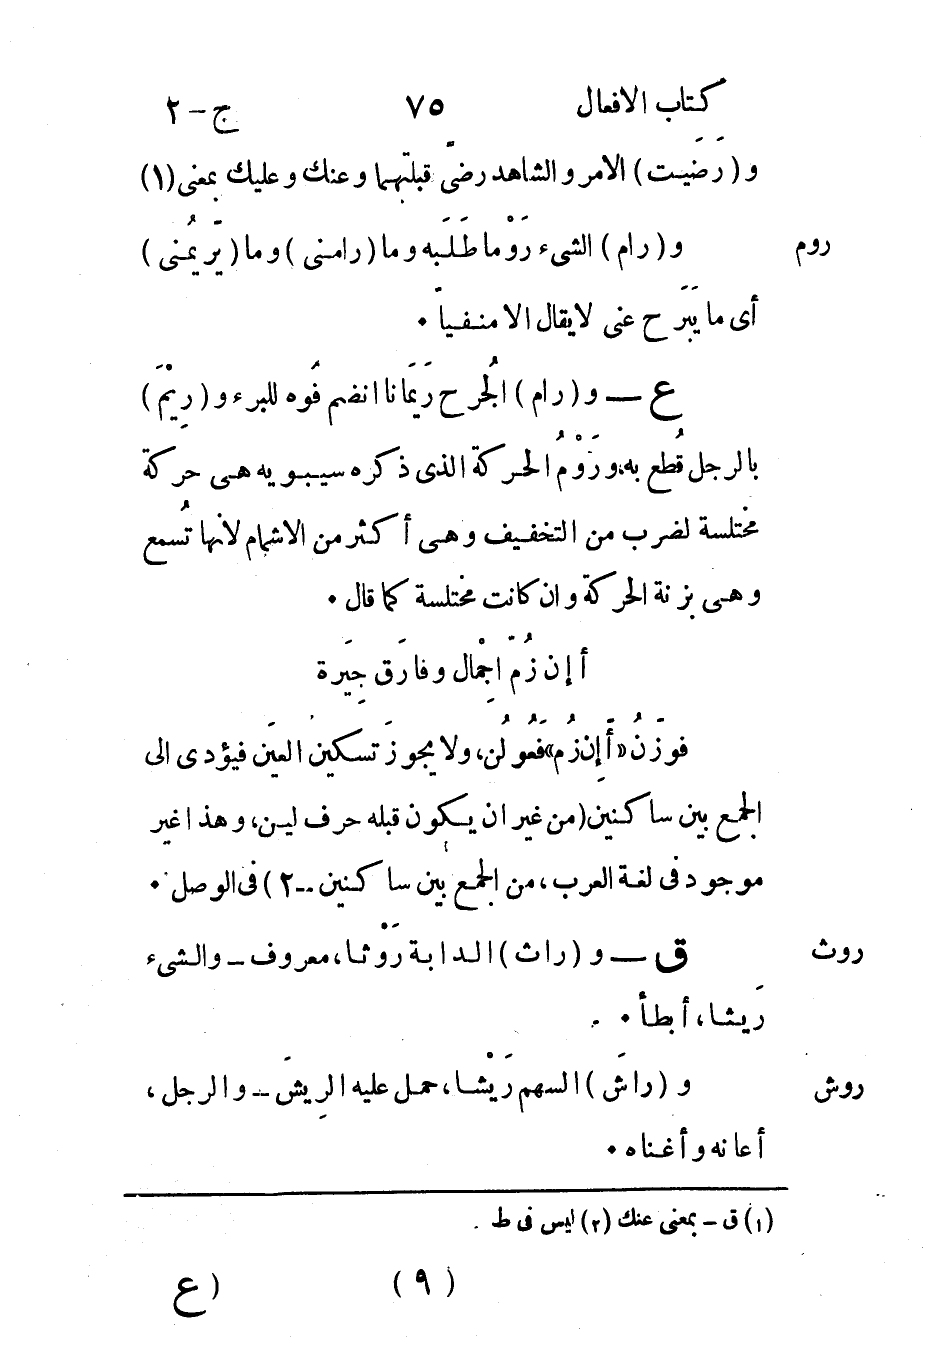 كتاب الافعال ٧٥ ج-٢
و(رَضَيت) الامر والشاهد رضىً قبلتهما وعنك وعليك بمعنى(١)
روم و(رام) الشىء رَوْما طَلَبه وما(رامنى) وما(يَريمُنى)
أى ما يَبَرح عنى لايقال الا منفياً ٠
ع — و(رام) الجُرح رَيَمَانا انضم فُوه للبرء و(رِيْمَ)
بالرجل قُطع به، ورَوْمُ الحركة الذى ذكره سيبويه هى حركة
مختلسة لضرب من التخفيف وهى أكثر من الاشمام لأنها تُسمع
وهى بزنة الحركة وان كانت مختلسة كما قال ٠
أإن زُمّ اجْمال وفارَق جِيَرة
فوزَنُ «أَإِن زُمَ» فَعُولُن، ولا يجوز تَسكين العَين فيؤدى الى
الجمع بين ساكنين(من غير ان يكون قبله حرف لين، وهذا غير
موجود فى لغة العرب، من الجمع بين ساكنين --٢) فى الوصل ٠
روث ق — و(راث) الدابة رَوْثا، معروف - والشىء
رَيثا، أبطأ ٠
روش و(راشَ) السهم رَيْشا، حمل عليه الرِيشَ - والرجل،
أعانه وأغناه ٠
(١) ق - بمعنى عنك (٢) ليس فى ط .
(٩) (ع